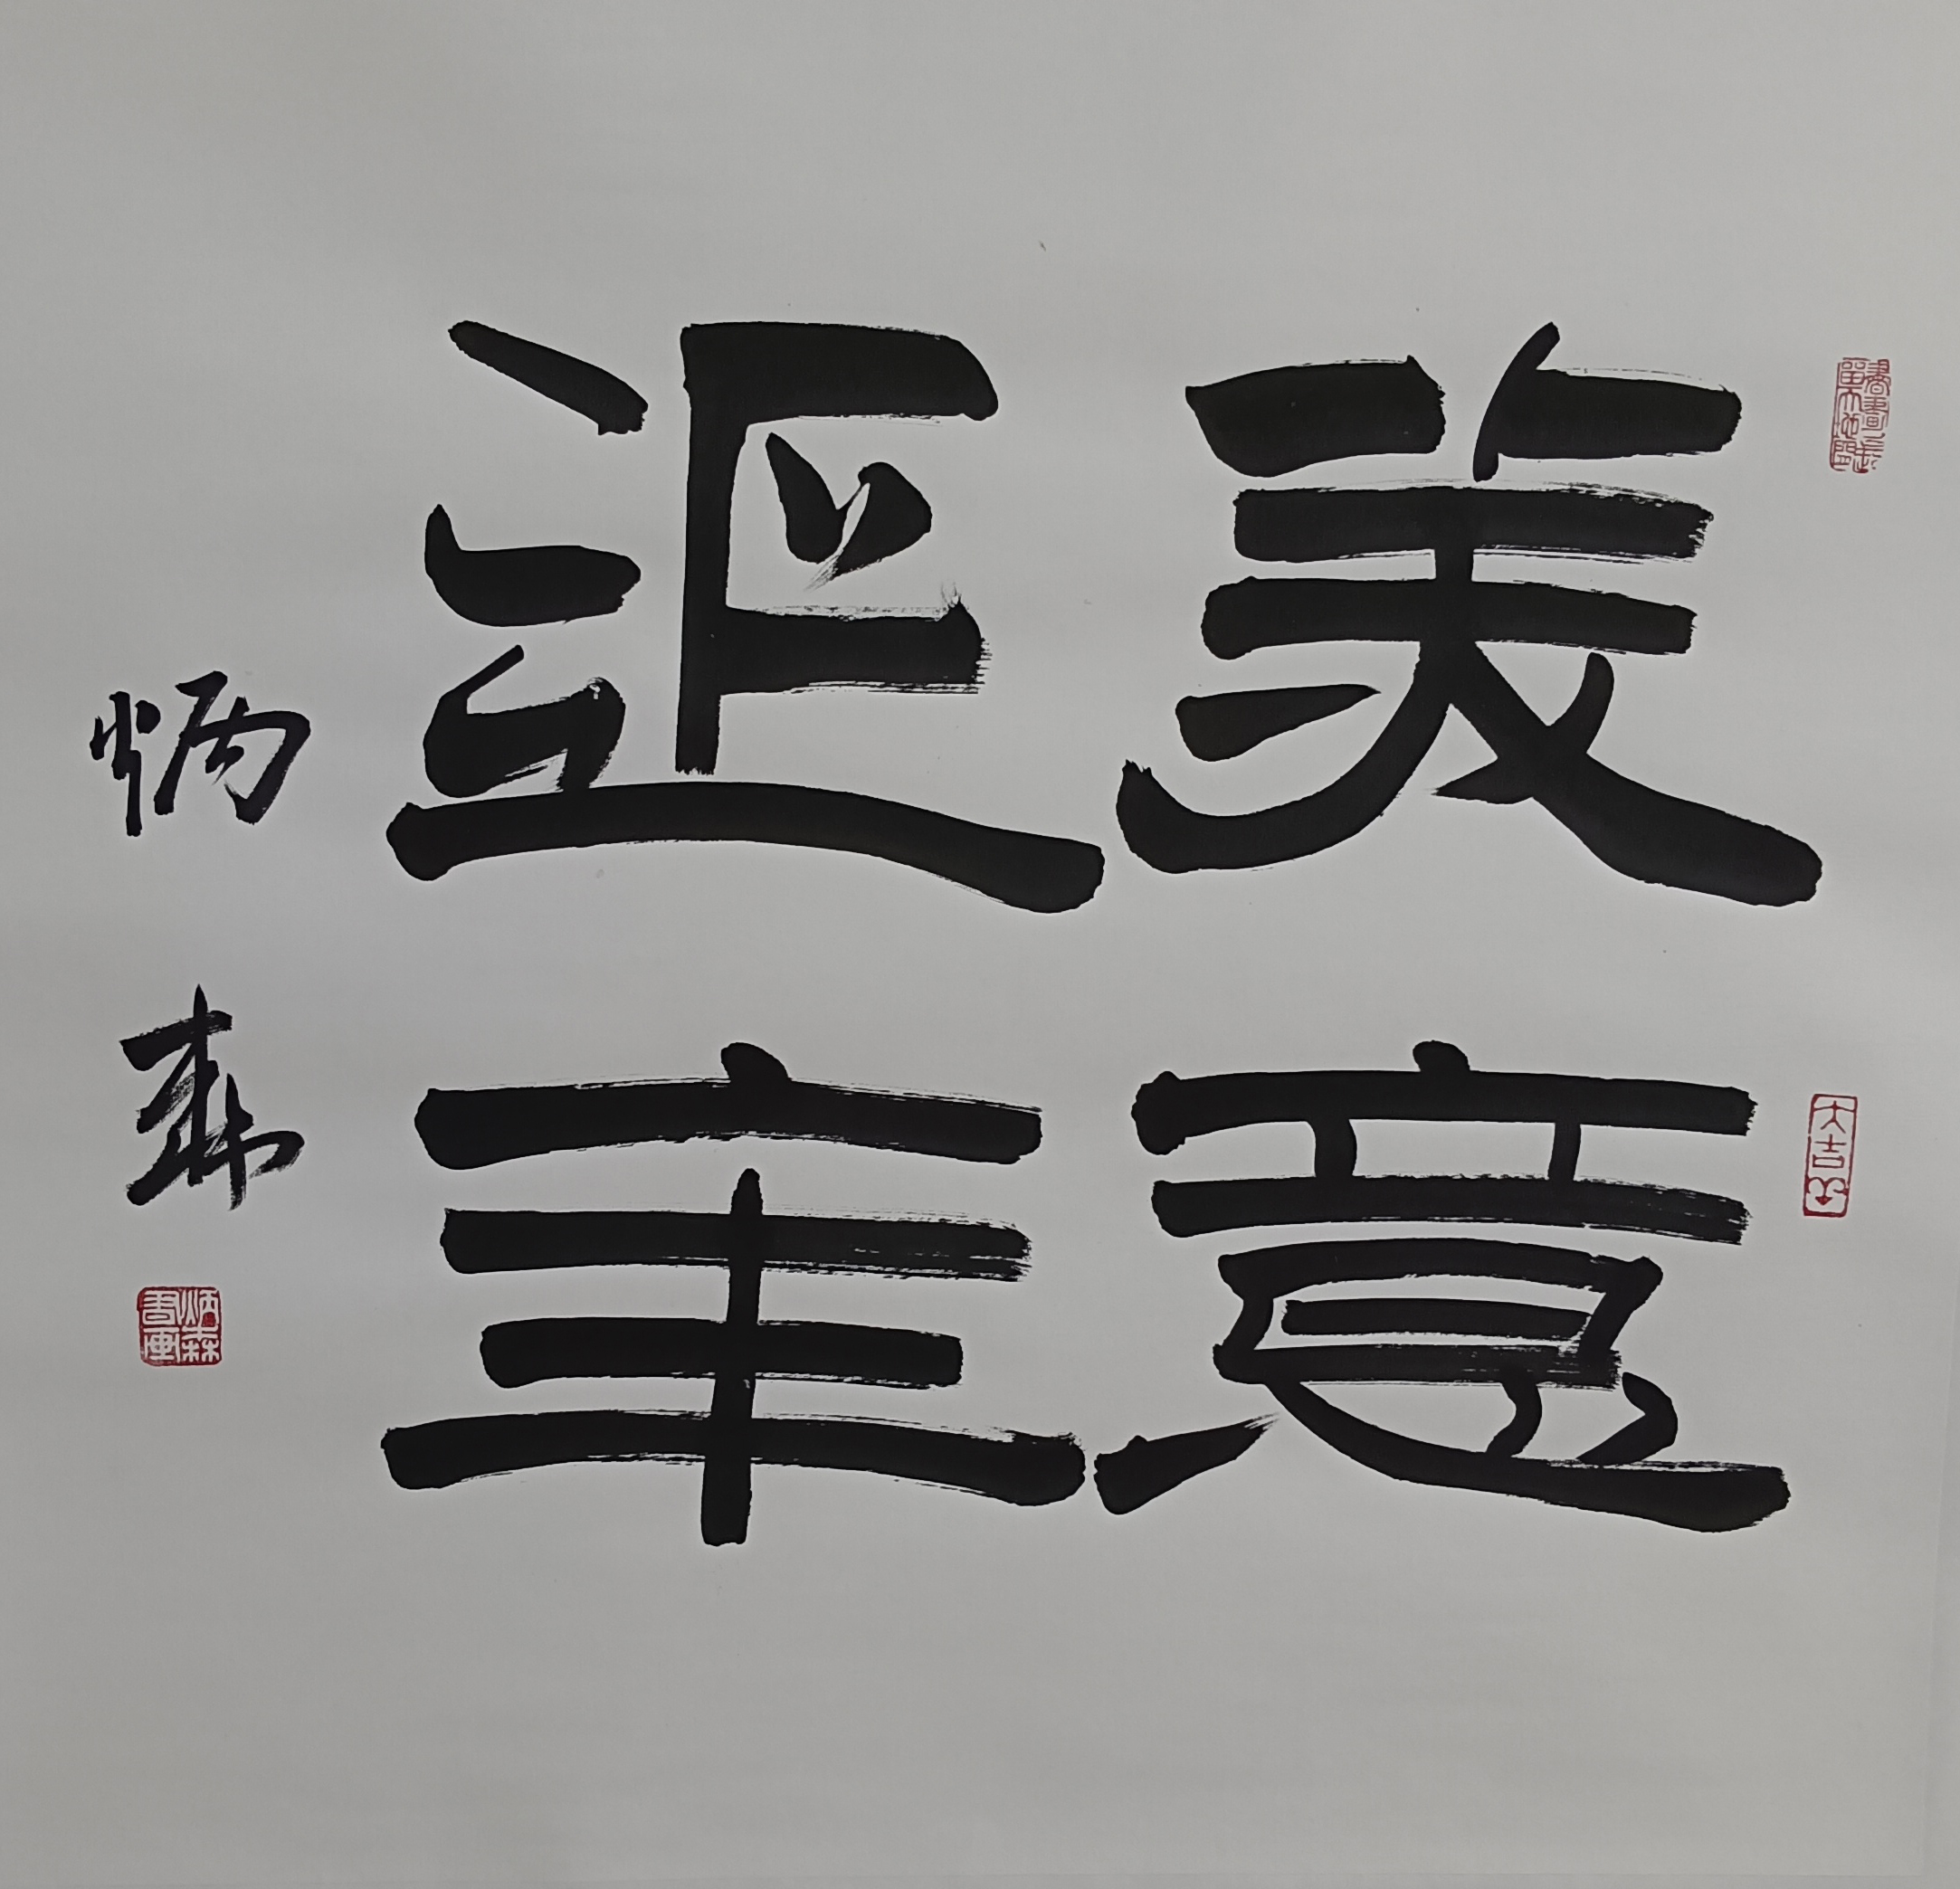 美意
延年
炳森
炳森書畫
大吉羊